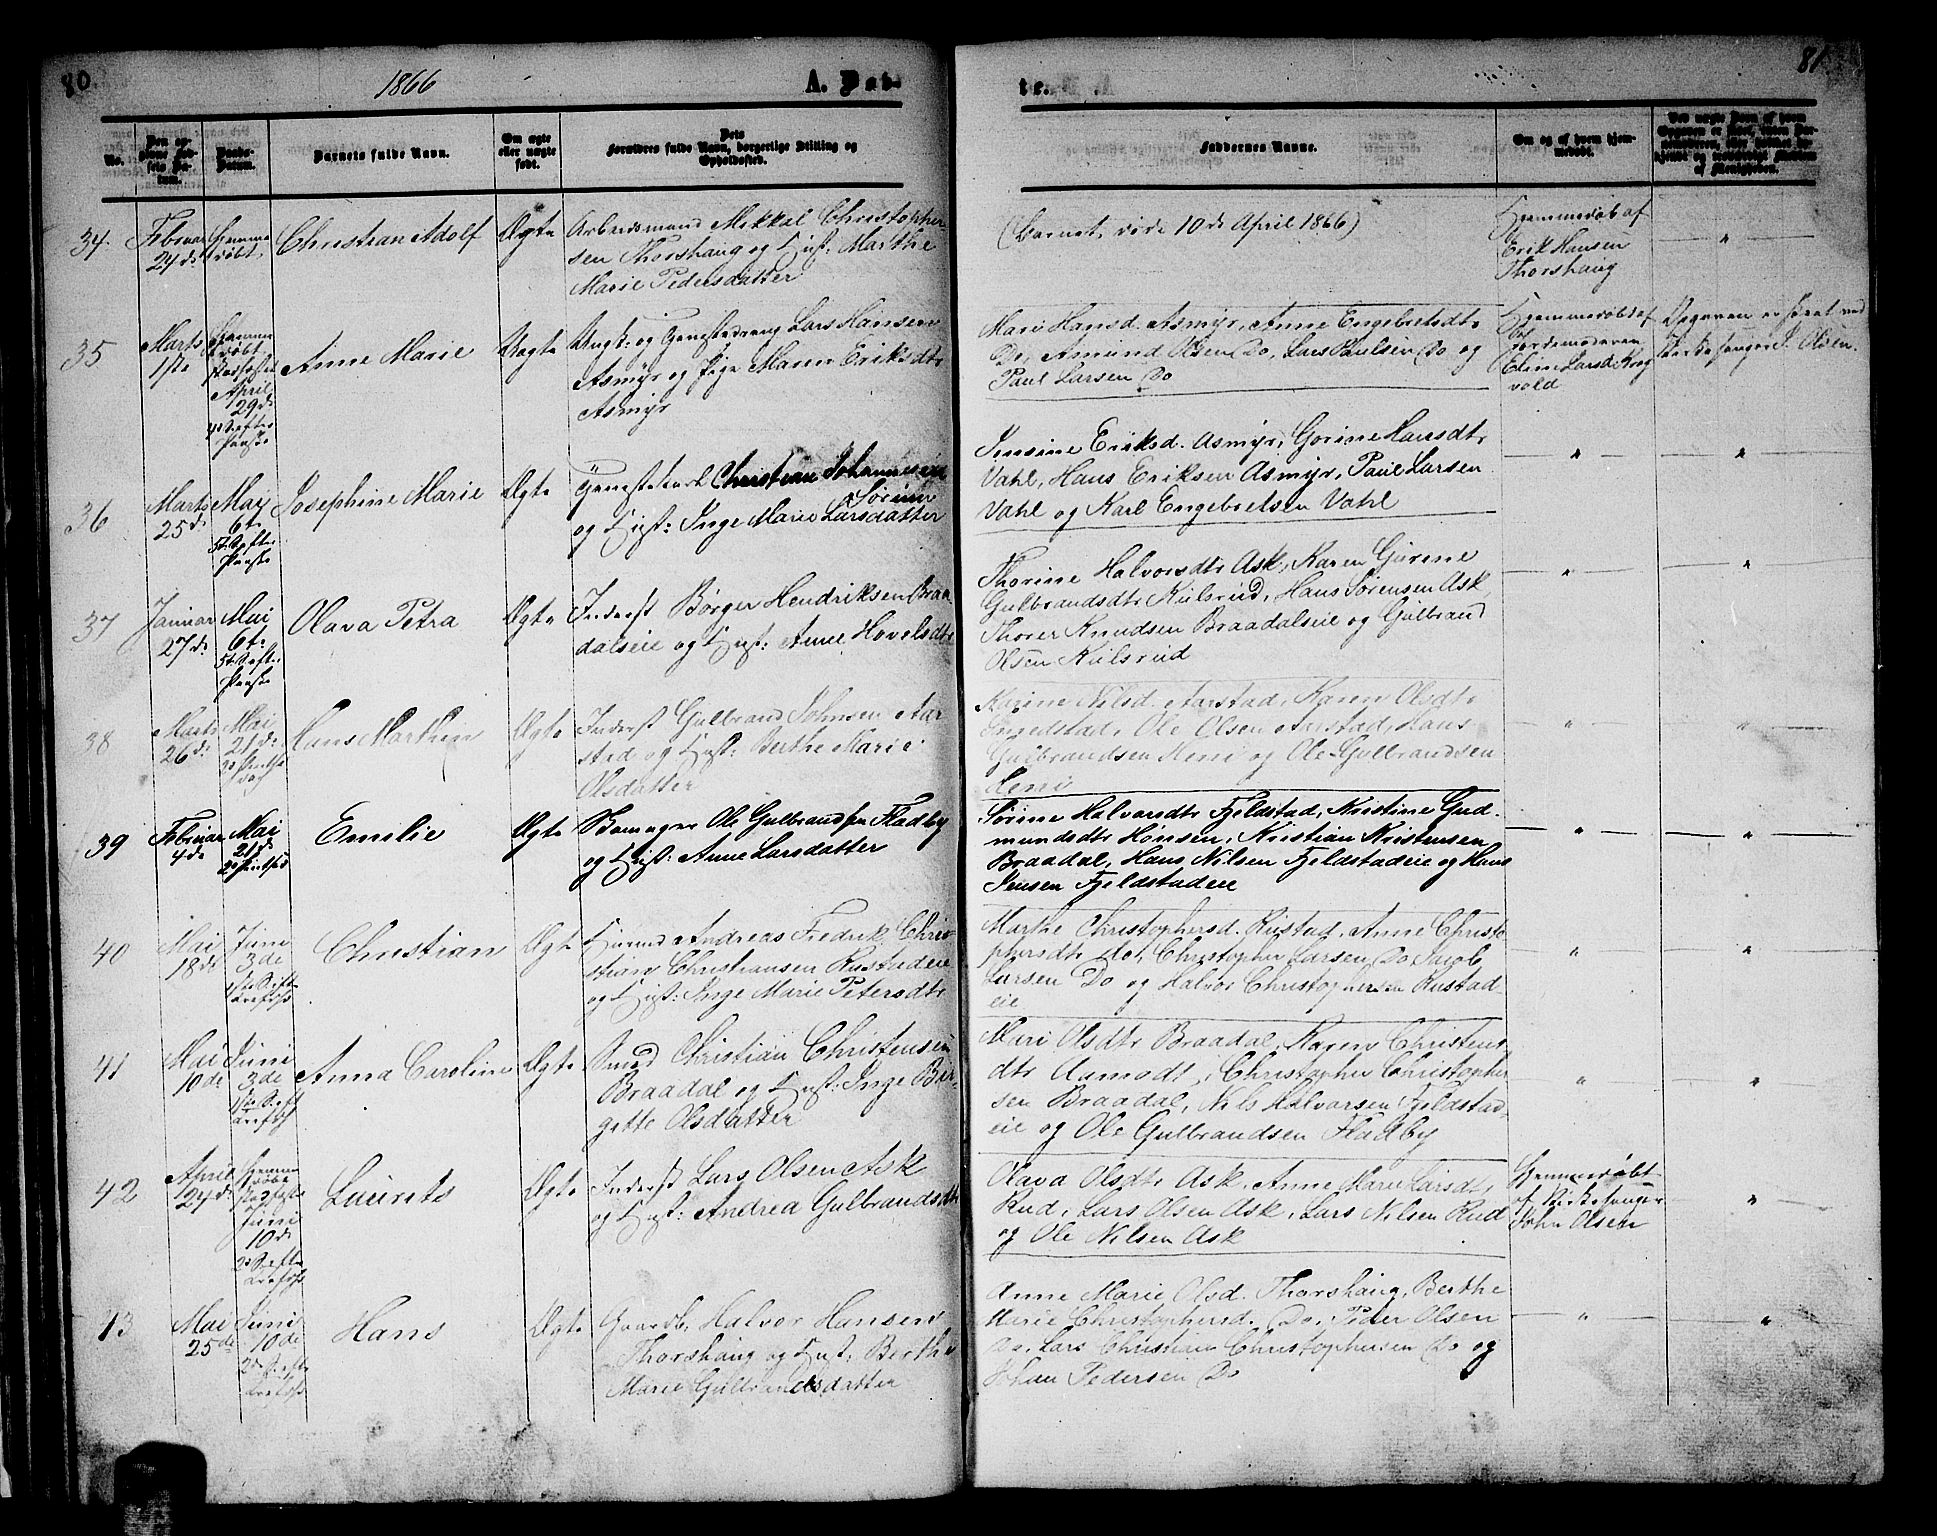 80.
1866
A. Døb-
te.
81
No.
Den op-
givne Fød-
sels Da-
tum.
Daabs-
Datum.
Barnets fulde Navn.
Om ægte
eller uægte
født.
Dets
Forældres fulde Navn, borgerlige Stilling og
Opholdssted.
Faddernes Navne.
Om og af hvem hjem-
medøbt.
34.
Februar
24de
Hjemme
døbt
Christian Adolf
Ægte
Arbeidsmand Mikkal Christopher-
sen Thorshaug og Hust: Marthe
Marie Pedersdatter
(Barnet døde 10de April 1866)
Hjemmedøb af
Erik Hansen
Thorshaug
"
35
Marts
1ste
Hjemme
døbt
Stadfæstet
April
29de
4de S. efter
Paaske
Anne Marie
Uægte
Ungk: og Tjenestedreng Lars Hansen
Asmyr og Pige Maren Eriksdtr
Asmyr
Mari Hansd. Asmyr, Anne Engebretsdtr
Do, Amund Olsen Do, Lars Paulsen Do og
Paul Larsen Do
Hjemmedøbt af
Jordemoderen
Eline Larsd. Krog
vold
Opgaven er skeet ved
Kirkesanger J. Olsen.
36
Marts
25de
Mai
6te
5te S. efter
Paaske
Josephine Marie
Ægte
Tjenestekarl Christian Johannesen
Sørum
og Hust: Inge Marie Larsdatter
Jensine Eriksd. Asmyr, Gorine Hansdtr
Vahl, Hans Eriksen Asmyr, Paul Larsen
Vahl og Karl Engebretsen Vahl
"
"
37
Januar
27de
Mai
6te
5te S. efter
Paaske
Olava Petra
Ægte
Inderst Børger Hendriksen Braa-
dalseie og Hust: Anne Hovelsdtr
Thorine Halvorsdtr Ask, Karen Gurine
Gulbrandsdtr Kulsrud, Hans Sørensen Ask,
Thorer Knudsen Braadalseie og Gulbrand
Olsen Kulsrud
"
"
38
Marts
26de
Mai
21de
2den Pintse
dag
Hans Martin
Ægte
Inderst Gulbrand Johnsen Aar
stad og Hust: Berthe Marie
Olsdatter
Karine Nilsd. Aarstad, Karen Olsdtr
Ingedstad, Ole Olsen Aarstad, Hans
Gulbrandsen Heni og Ole Gulbrandsen
Heni
"
"
39
Februar
4de
Mai
21de
2den Pintsed
Emilie
Ægte
Skomager Ole Gulbrandsen Fladby
og Hust: Anne Larsdatter
Sørine Halvorsdtr Fjeldstad, Kristine Gud-
mundsdtr Hønsen, Kristian Kristensen
Braadal, Hans Nilsen Fjeldstadeie og Hans
Jensen Fjeldstadeie
"
"
40
Mai
18de
Juni
3de
1ste S. eft
Trefold.
Christian
Ægte
Huusmd Andreas Fredrik Chri-
stian Christiansen Rustadeie
og Hust: Inge Marie Petersdtr
Marthe Christophersd. Rustad, Anne Christo
phersdtr do, Christopher Larsen Do, Jacob
Larsen Do og Halvor Christophersen Rustad-
eie
"
"
41
Mai
10de
Juni
3de
1ste S. eft
Trefold
Anna Caroline
Ægte
Smed Christian Christensen
Braadal og Hust: Inge Bir-
gitte Olsdatter
Mari Olsdtr Braadal, Karen Christens
dtr Aamodt, Christopher Christopher
sen Braadal, Nils Halvorsen Fjeldstad-
eie og Ole Gulbrandsen Fladby
"
"
42
April
24de
Hjemme
døbt
Stadfæstet
Juni
10de
2den S. efter
Trefold
Laurits
Ægte
Inderst Lars Olsen Ask
og Hust: Andrea Gulbrandsdtr
Olava Olsdtr Ask, Anne Marie Larsdtr
Rud, Lars Olsen Ask, Lars Nilsen Rud
og Ole Nilsen Ask
Hjemmedøbt
af Kirkesanger
John Olsen
"
43
Mai
25de
Juni
10de
2den S. eft
Trefold
Hans
Ægte
Gaardb. Halvor Hansen
Thorshaug og Hust: Berthe
Marie Gulbrandsdatter
Anne Marie Olsd. Thorshaug, Berthe
Marie Christophersd. Do, Peder Olsen
Do, Lars Christian Christophersen Do og
Johan Pedersen Do
"
"